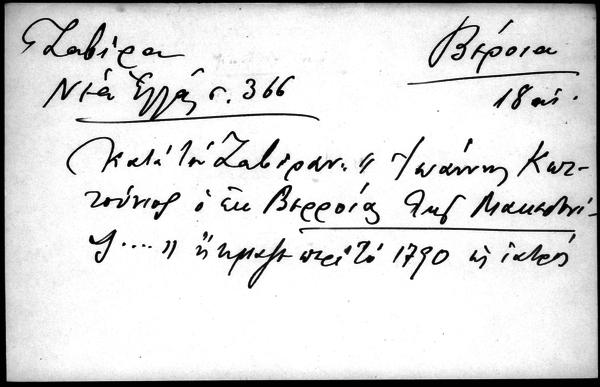 Γ Ζαβίρα
Νέα Ἑλλάς σ. 366
Βέροια
18 αἰ.
Κατά τόν Ζαβίραν. „ Ἰωάννης Κωτ-
τούνιος ὁ ἐκ Βερροίας τῆς Μακεδονί-
ς.... „ ἤκμαζε περί τό 1790 ὡς ἰατρός